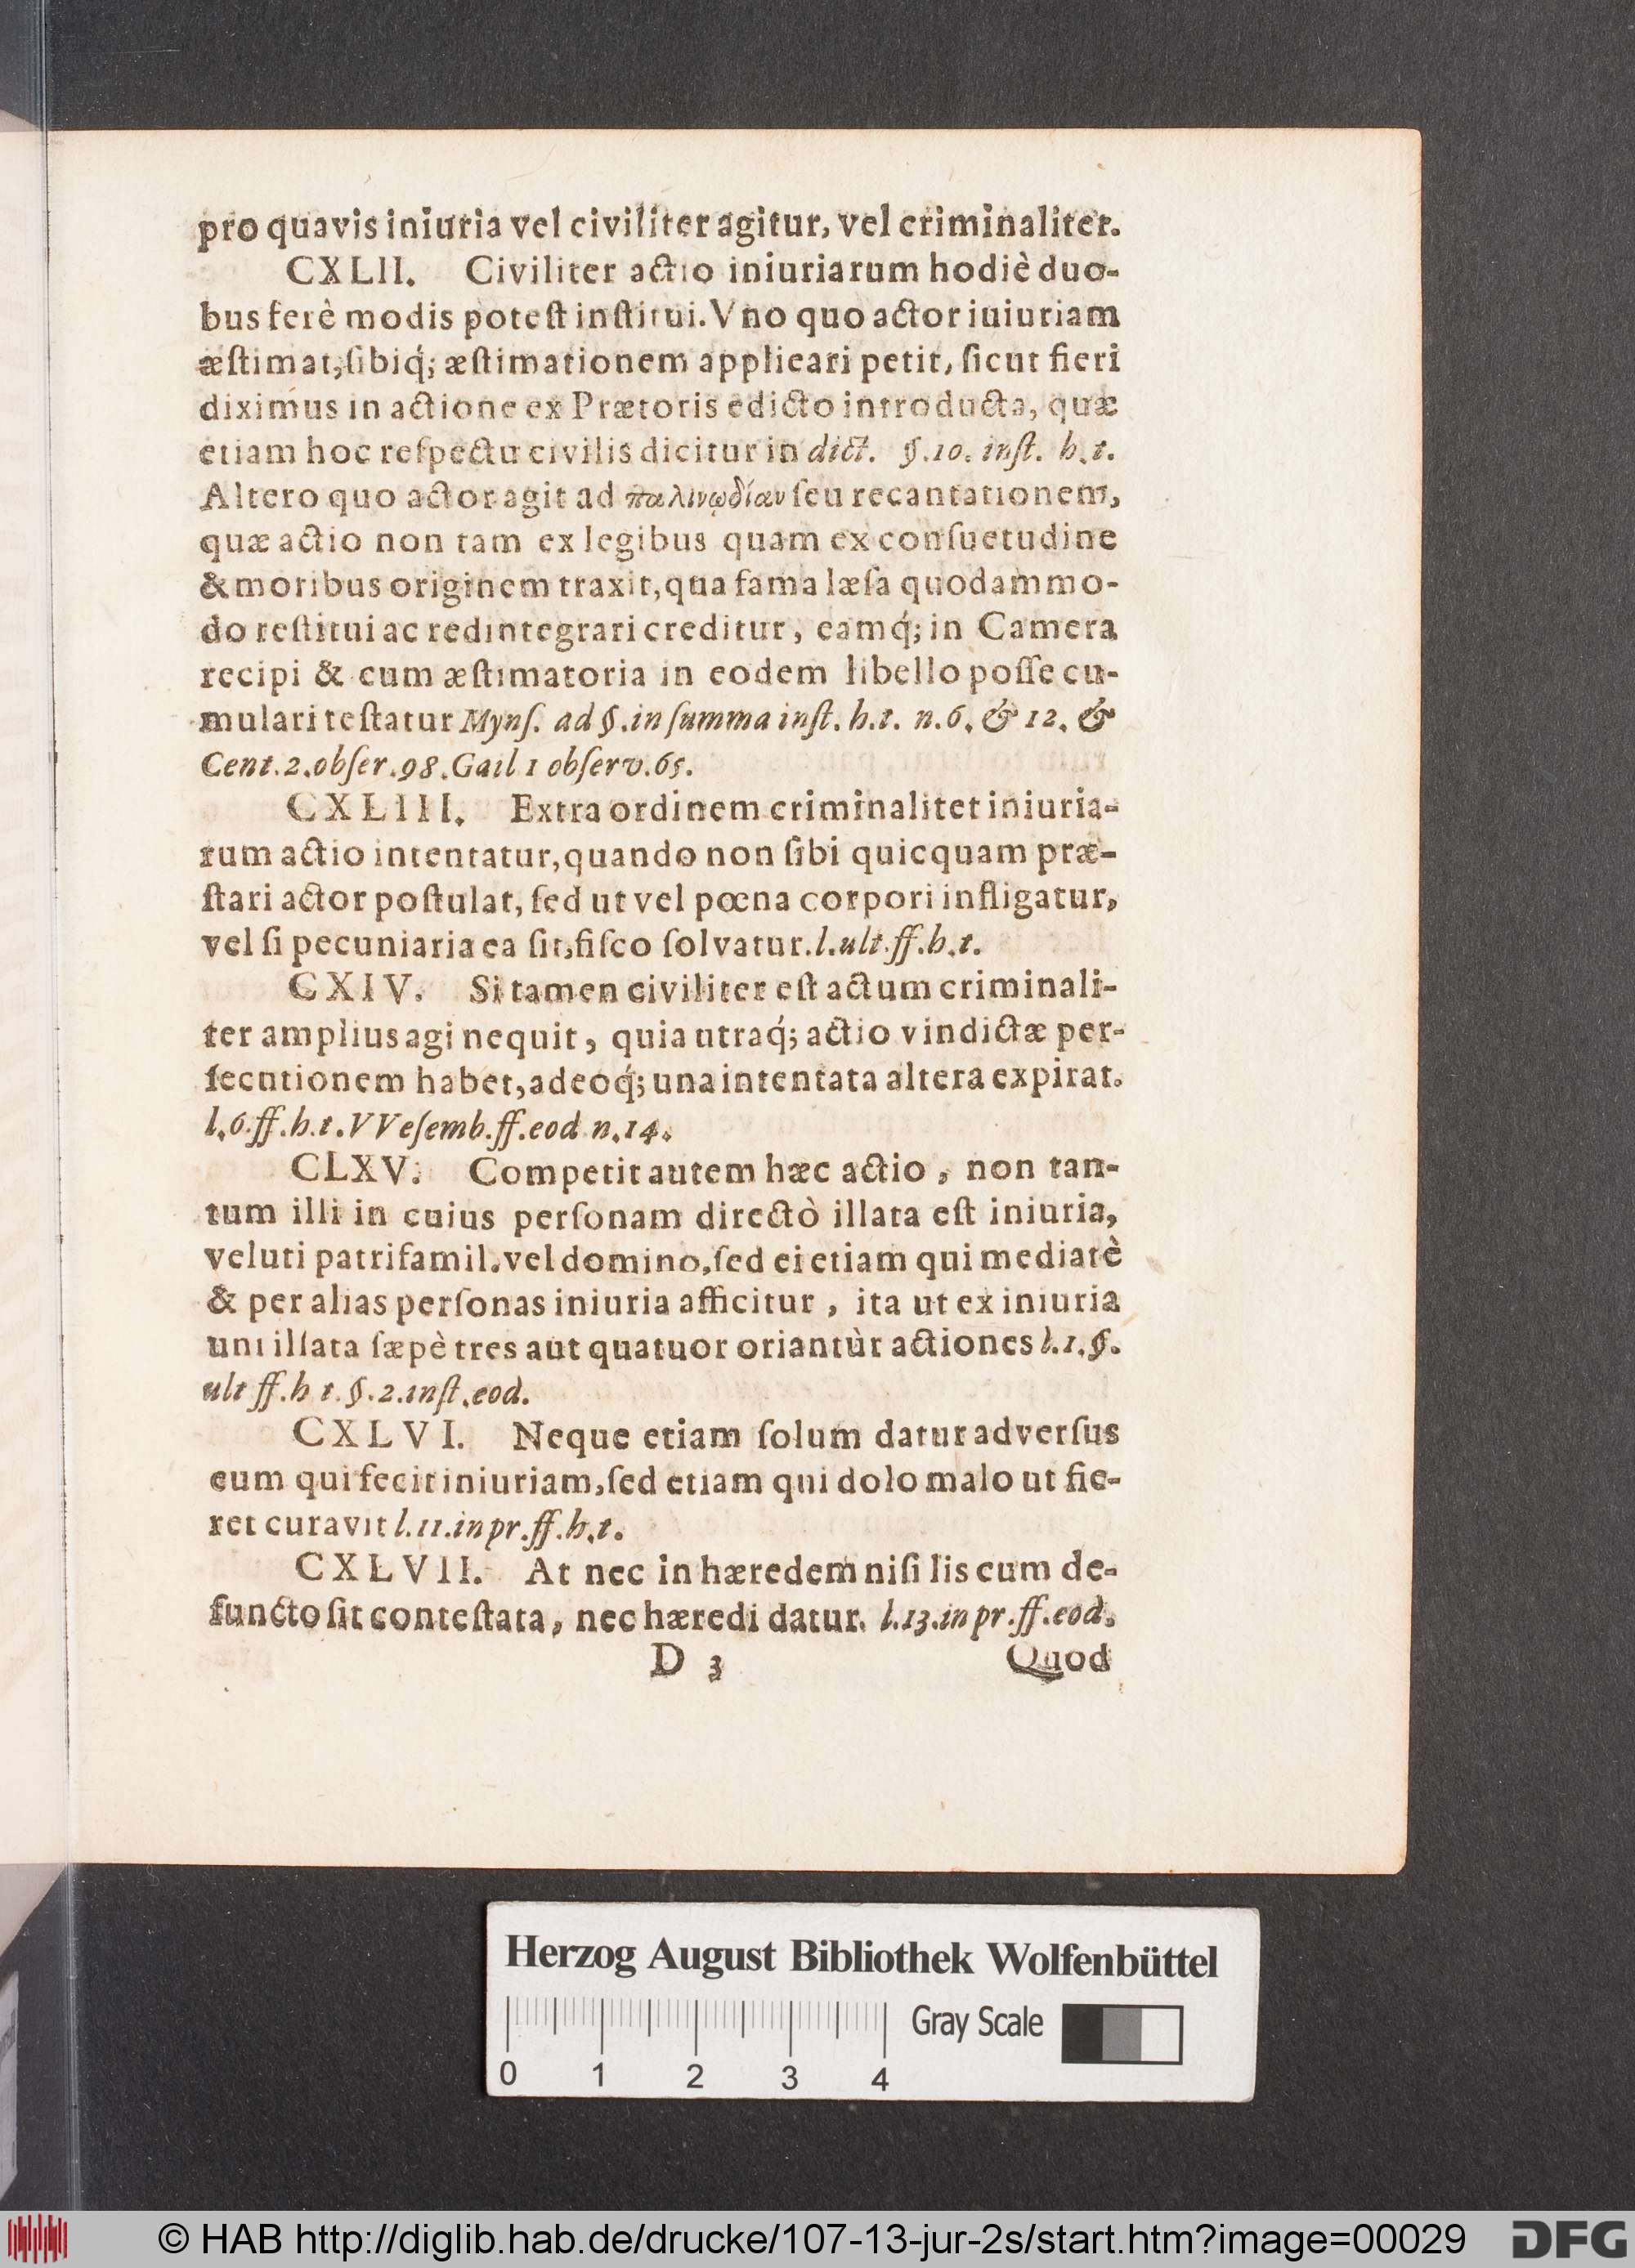 pro quavis iniuria vel civiliter agitur, vel criminaliter.
CXLII. Civiliter actio iniuriarum hodiè duo-
bus ferè modis poteſt inſtitui. Vno quo actor iuiuriam
æſtimat, ſibiq́; æſtimationem applicari petit, ſicut fieri
diximus in actione ex Prætoris edicto introducta, quæ
etiam hoc reſpectu civilis dicitur in dict. §.10. inſt. h.t.
Altero quo actor agit ad παλινῳδίαν ſeu recantationem,
quæ actio non tam ex legibus quam ex conſuetudine
& moribus originem traxit, qua fama læſa quodammo-
do reſtitui ac redintegrari creditur, eamq́; in Camera
recipi & cum æſtimatoria in eodem libello poſſe cu-
mulari teſtatur Mynſ. ad §. in ſumma inſt. h.t. n.6. & 12. &
Cent.2.obſer.98.Gail 1 obſerv.65.
CXLIII. Extra ordinem criminalitet iniuria-
rum actio intentatur, quando non ſibi quicquam præ-
ſtari actor poſtulat, ſed ut vel pœna corpori infligatur,
vel ſi pecuniaria ea ſit, fiſco ſolvatur. l.ult.ff.h.t.
CXIV. Si tamen civiliter eſt actum criminali-
ter amplius agi nequit, quia utraq́; actio vindictæ per-
ſecutionem habet, adeoq́; una intentata altera expirat.
l.6.ff.h.t.VVeſemb.ff.eod n.14.
CLXV. Competit autem hæc actio, non tan-
tum illi in cuius perſonam directò illata eſt iniuria,
veluti patrifamil. vel domino, ſed ei etiam qui mediatè
& per alias perſonas iniuria afficitur, ita ut ex iniuria
uni illata ſæpè tres aut quatuor oriantùr actiones l.1.§.
ult ff.h t.§.2.inſt.eod.
CXLVI. Neque etiam ſolum datur adverſus
eum qui fecit iniuriam, ſed etiam qui dolo malo ut fie-
ret curavit l.11.in pr.ff.h.t.
CXLVII. At nec in hæredem niſi lis cum de-
functo ſit conteſtata, nec hæredi datur. l.13.in pr.ff.eod.
D 3 Quod
Herzog August Bibliothek Wolfenbüttel
Gray Scale
0 1 2 3 4
© HAB http://diglib.hab.de/drucke/107-13-jur-2s/start.htm?image=00029 DFG